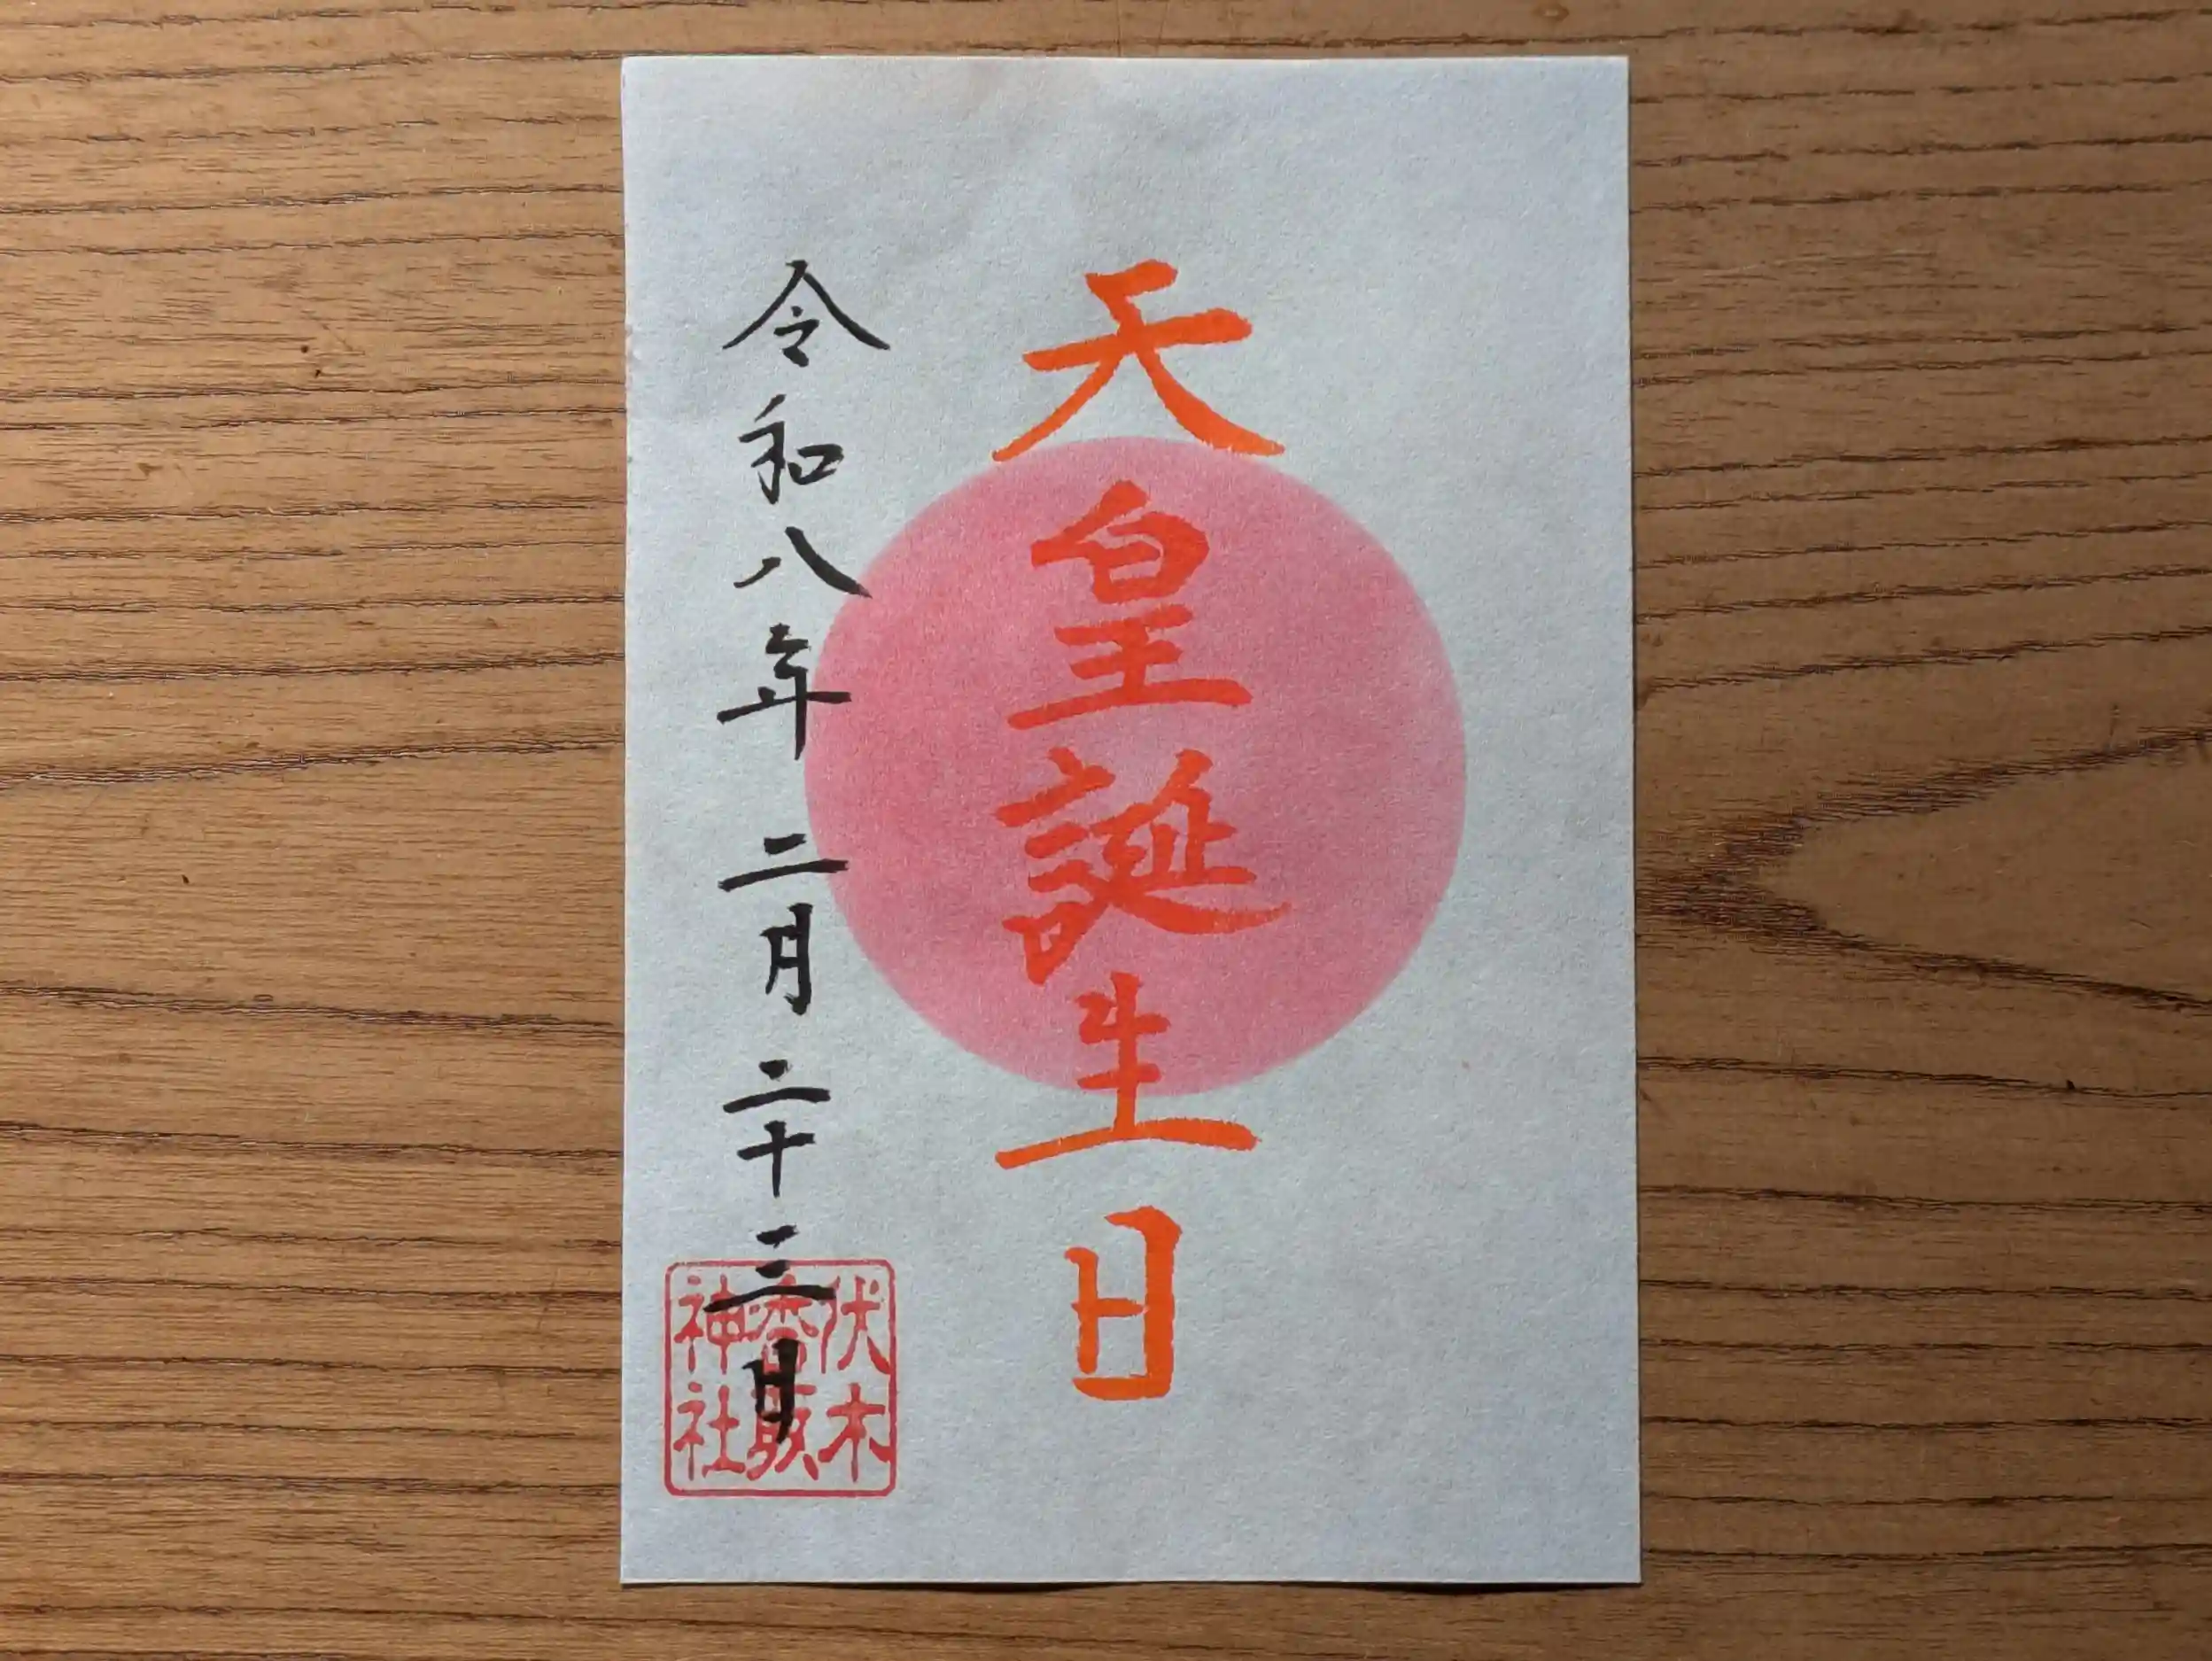 天皇誕生日
令和八年 二月 二十三日
伏木
香取
神社